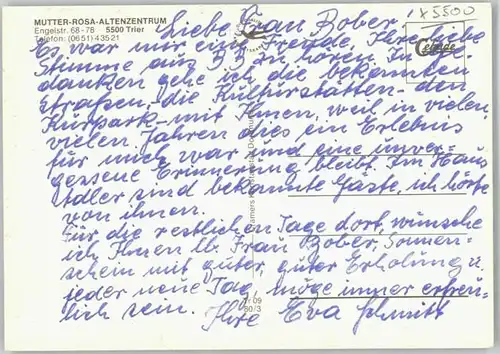 MUTTER-ROSA-ALTENZENTRUM
Engelstr. 68-78 5500 Trier
Telefon: (0651) 43521
x5500
Liebe Frau Bober!
Es war mir eine Freude, Ihre liebe
Stimme aus zu hören. In Ge-
danken gehe ich die bekannten
Straßen, die Kulturstätten - den
Kurpark - mit Ihnen, weil in vielen
vielen Jahren dies ein Erlebnis
für mich war und eine unver-
gessene Erinnerung bleibt. Im Haus
Adler sind bekannte Gäste, ich hörte
von ihnen.
Für die restlichen Tage dort, wünsche
ich Ihnen lb. Frau Bober, Sonnen-
schein mit guter, guter Erholung u.
jeder neue Tag möge immer erfreu-
lich sein. Ihre Eva Schmitt
09
80/3